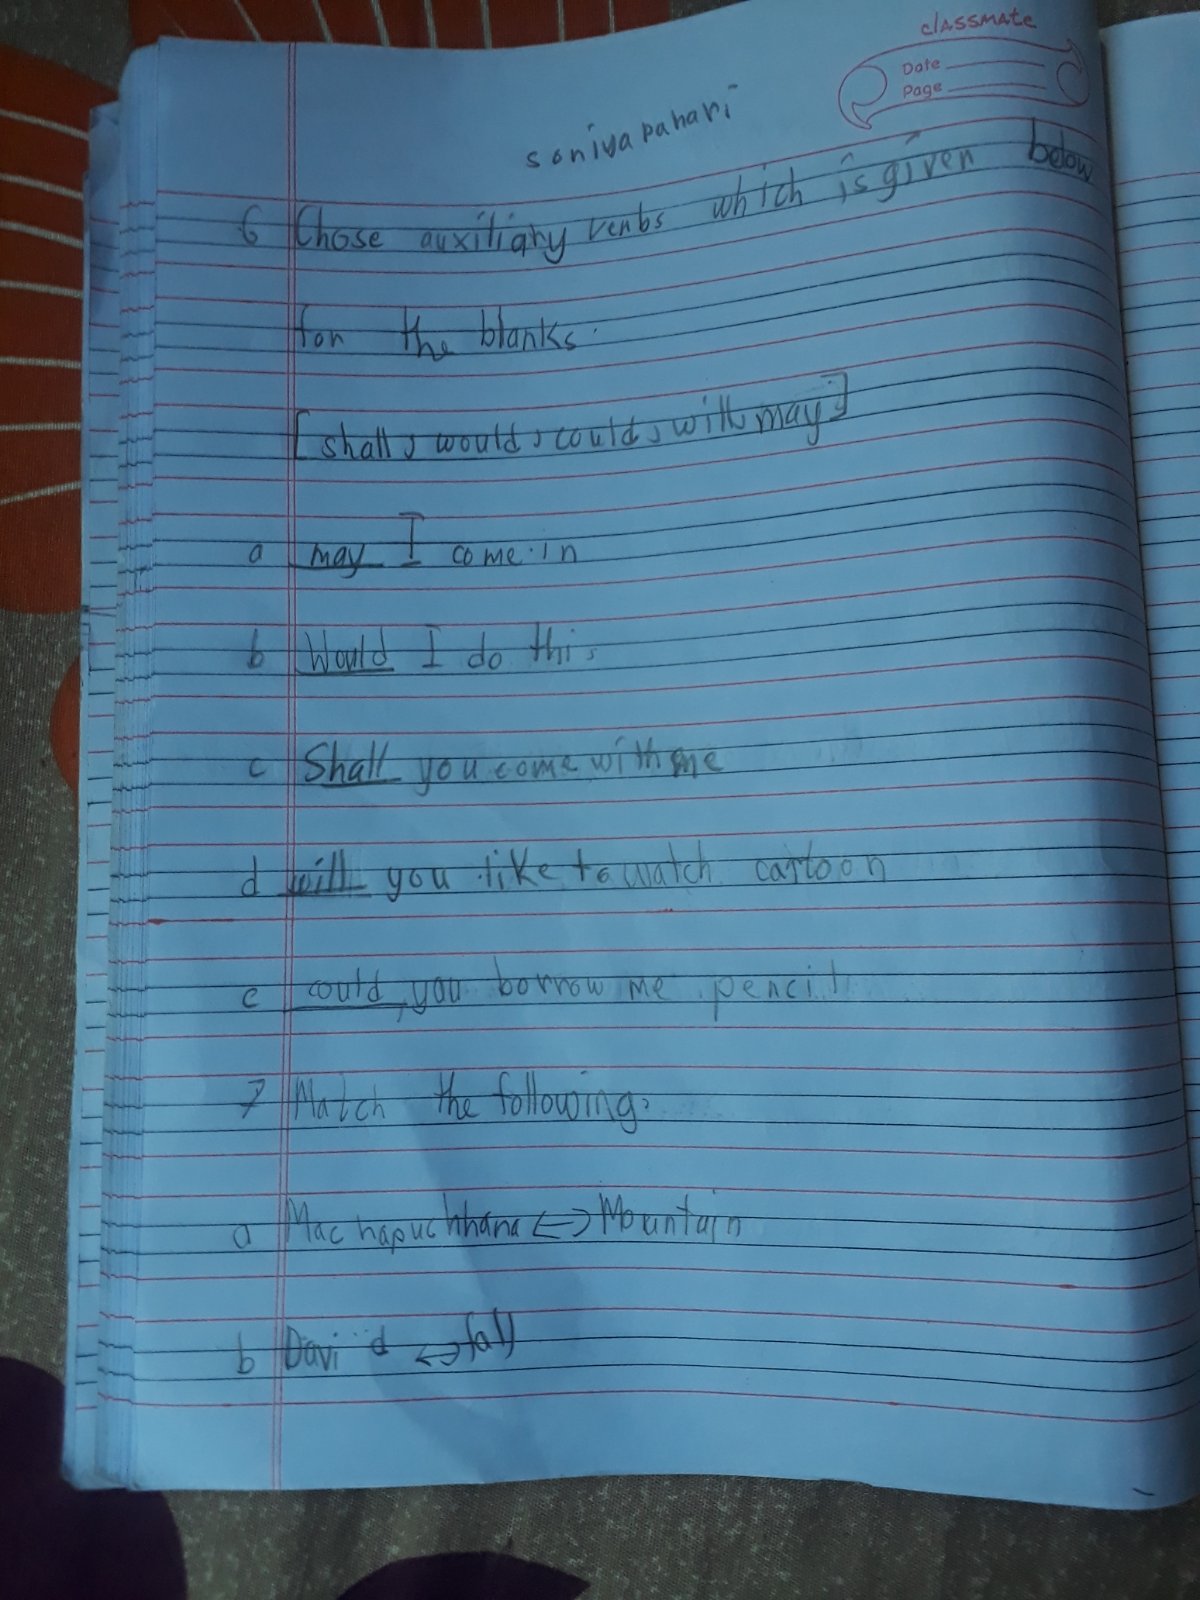 classmate
Date
Page
soniya pahari
6 Chose auxiliary verbs which is given below
for the blanks.
[shall, would, could, will, may]
a may I come in
b Would I do this
c Shall you come with me
d will you like to watch cartoon
e could, you borrow me pencil
7 Match the following:
a Machapuchhana <-> Mountain
b David <-> fall